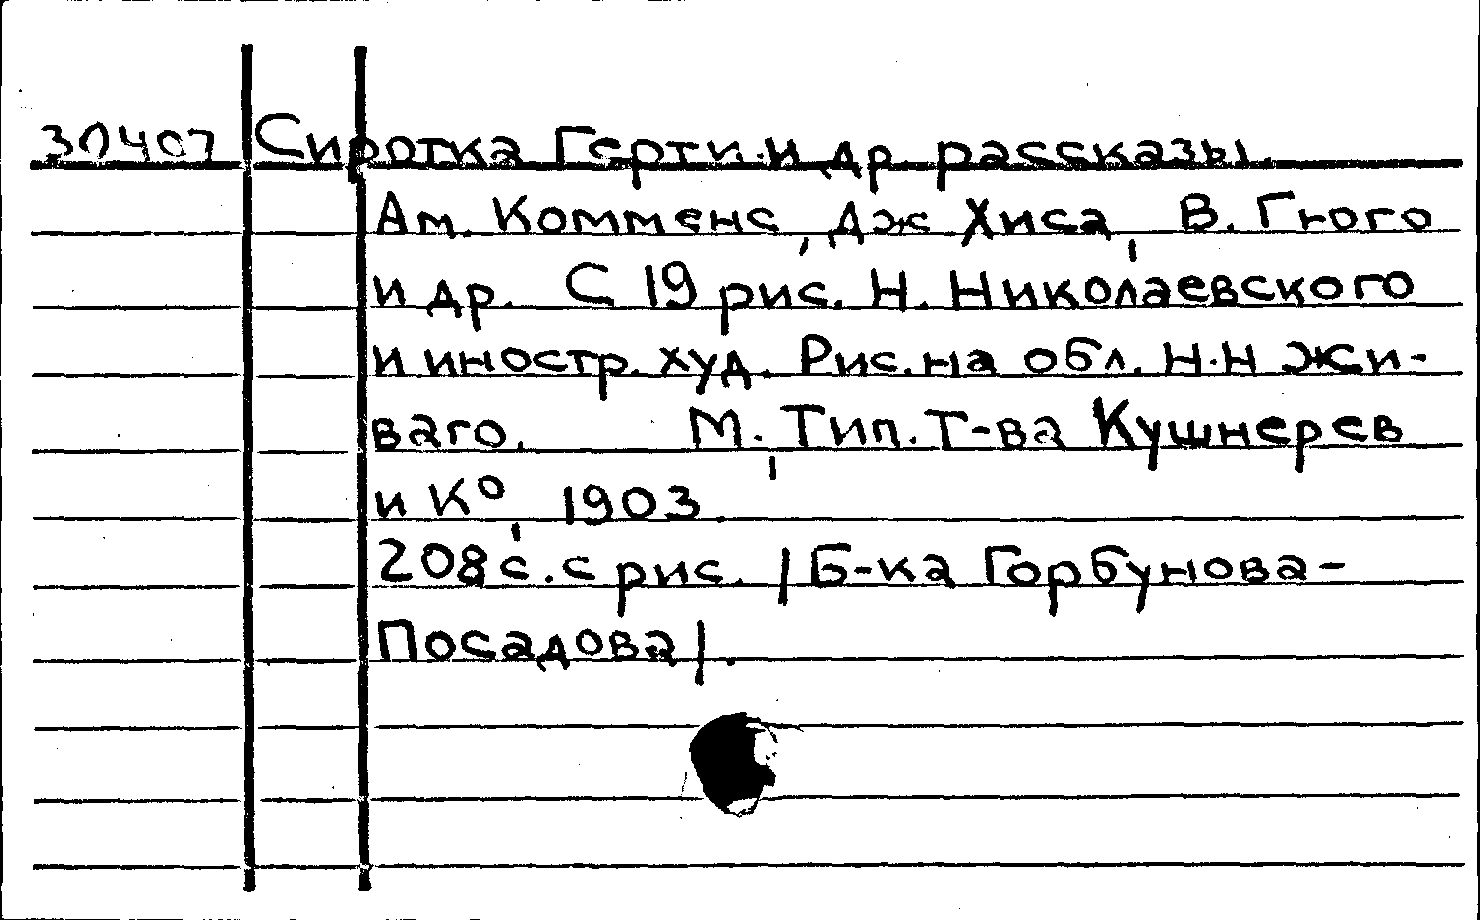 30407 Сиротка Герти и др. рассказы.
Ам. Комменс, Дж Хиса, В. Гюго
и др. С 19 рис. Н. Николаевского
и иностр. худ. Рис. на обл. Н.Н Жи-
ваго. М., Тип. Т-ва Кушнерев
и К°, 1903.
208 с. с рис. /Б-ка Горбунова-
Посадова/.